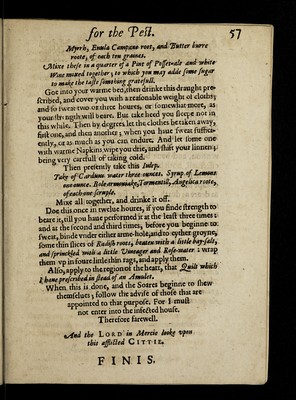 for the Pest. 57
Myrrh, Enula Campano root, and Butter burre
roote, of each ten graines.
Mixe these in a quarter of a Pint of Possetvale and white
Wine mixed together; to which you may adde some sugar
to make the taste somthing gratefull.
Got into your warme bed, then drinke this draught pre-
scribed, and cover you with a reasonable weight of cloths;
and so sweat two or three houres, or somewhat more, as
your strength will beare. But take heed you sleepe not in
this while. Then by degrees let the clothes be taken away,
first one, and then another; when you have sweat suffici-
ently, or as much as you can endure. And let some one
with warme Napkins wipe you drie, and shift your linnen;
being very carefull of taking cold.
Then presently take this Julep.
Take of Carduus water three ounces. Syrup of Lemons
one ounce. Bole armoniake, Tormentill, Angelica roote,
of each one scruple.
Mixe all together, and drinke it off.
Doe this once in twelve houres, if you finde strength to
beare it, till you have performed it at the least three times:
and at the second and third times, before you beginne to
sweat, binde under either arme-hole, and to eyther groyne,
some thin slices of Radish roots, beaten with a little bay-salt,
and sprinckled with a little Vineager and Rose-water: wrap
them up in foure little thin rags, and apply them.
Also, apply to the region of the heart, that Quilt which
I have prescribed in stead of an Amulet.
When this is done, and the Soares beginne to shew
themselues; follow the advise of those that are
appointed to that purpose. For I must
not enter into the infected house.
Therefore farewell.
And the LORD in Mercie looke vpon
this afflicted CITTIE.
FINIS.